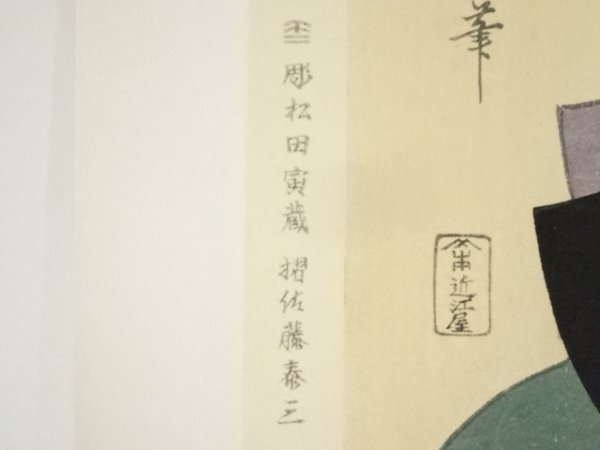 筆
本近江屋
彫松田寅蔵 摺佐藤泰三